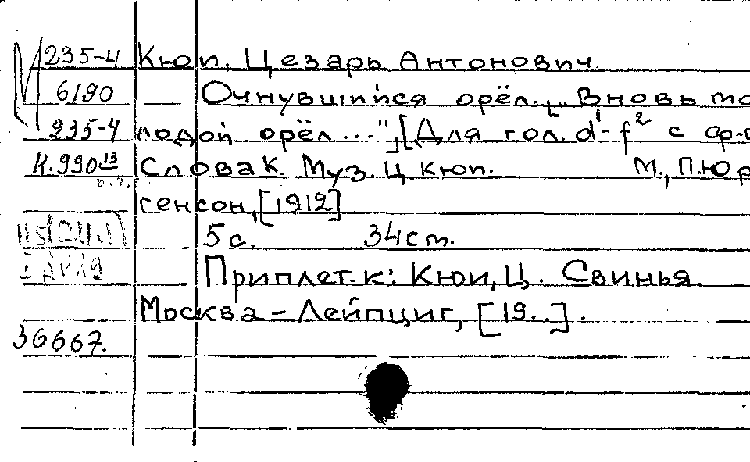 235-4 Кюи, Цезарь Антонович.
6190 Очнувшийся орёл. „Вновь мо
235-4 лодой орёл..." [Для гол. d¹-f² с фр-
К.990 13 Слова К. Муз. Ц. Кюи. М., П. Юр
генсон, [1912]
5 с. 34 cm.
Приплет. к: Кюи, Ц. Свинья.
Москва – Лейпциг, [19..].
36667.